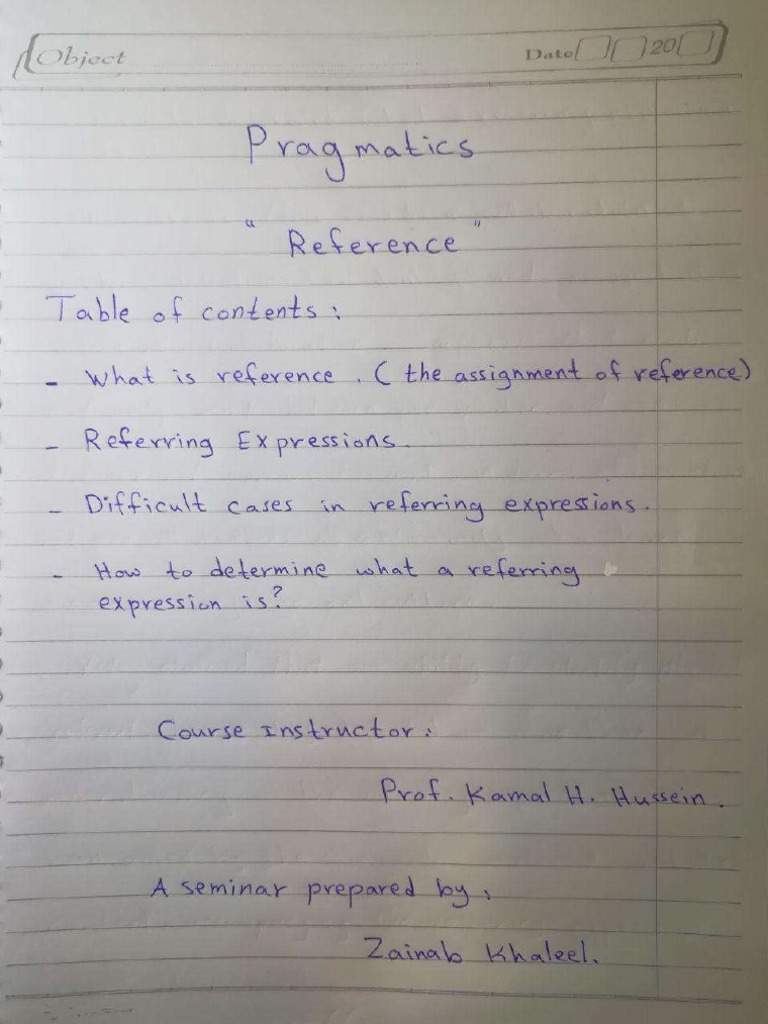 Object Date 20
Pragmatics
" Reference "
Table of contents :
- What is reference . ( the assignment of reference)
- Referring Expressions.
- Difficult cases in referring expressions.
- How to determine what a referring
expression is?
Course instructor :
Prof. Kamal H. Hussein.
A seminar prepared by :
Zainab Khaleel.